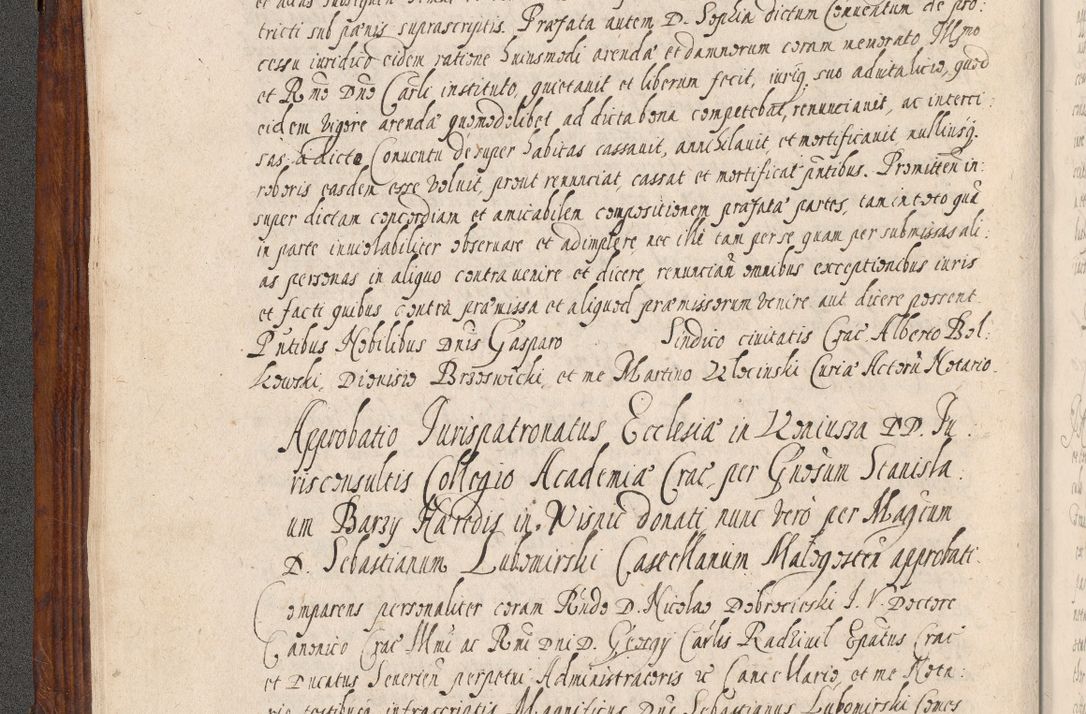 tricti sub pænis suprascriptis. Præfata autem D. Sophia dictum Conuentum de pro:
cessu iuridico eidem ratione huiusmodi arendæ et damnorum coram memorato Illmo
et Rmo Dno Carli instituto, quietauit et liberum fecit, iuriq suo aduitalicio, quod
eidem vigore arendæ quomodolibet ad dicta bona competebat, renunciauit, ac interci:
sas a dicto Conuentu desuper habitas cassauit, annihilauit et mortificauit nulliusq
roboris easdem esse voluit, prout renunciat, cassat et mortificat pntibus. Promitten in:
super dictam concordiam et amicabilem compositionem præfatæ partes, tam in toto qua
in parte inuiolabiliter obseruare et adimplere, nec illi tam per se quam per submissas ali:
as personas in aliquo contra uenire et dicere, renuncian omnibus exceptionibus iuris
et facti quibus contra præmissa et aliquod præmissorum venire aut dicere possent.
Pntibus Nobilibus Dnis Gasparo Sindico ciuitatis Crac Alberto Bol:
kowski, Dionisio Brzoswicki, et me Martino Klocinski Curiæ Actoru Notario.
Approbatio Jurispatronatus Ecclesiæ in Koniusza DD. Ju:
risconsultis Collegio Academiæ Crac, per Gnosum Stanisla:
um Barzy Hæredis in Wisnic donati, nunc vero per Magcum
D. Sebastianum Lubomirski Castellanum Malogosten approbati.
Comparens personaliter coram Rndo D. Nicolao Dobrocieski I. V. Doctore
Canonico Crac Illmi ac Rmi Dni D. Georgy Carlis Radziuil Epatus Crac
et Ducatus Seuerien perpetui Administratoris uc Cancellario, et me Nota:
rio testibusq infrascriptis Magnificus Dnus Sebastianus Lubomirski Comes